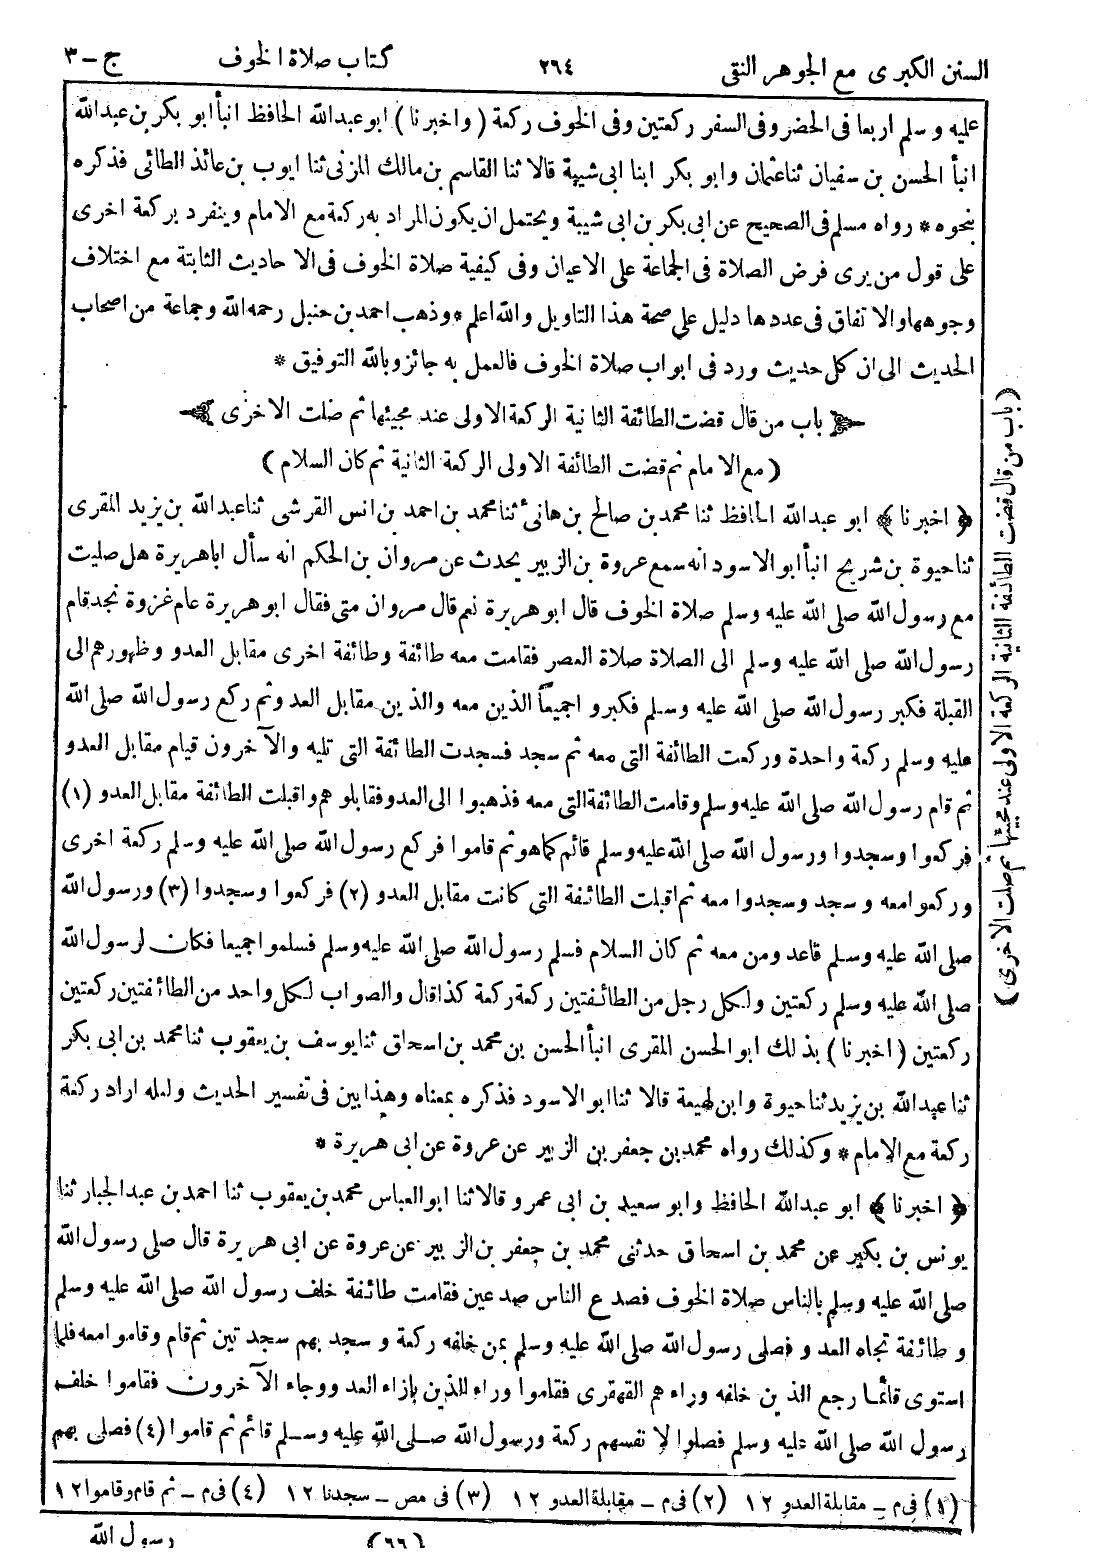 السنن الكبرى مع الجوهر النقى ٢٦٤ كتاب صلاة الخوف ج - ٣
عليه وسلم اربعا فى الحضر وفى السفر ركعتين وفى الخوف ركعة (واخبرنا) ابو عبدالله الحافظ انبأ ابو بكر بن عبدالله
انبأ الحسن بن سفيان ثنا عثمان وابو بكر ابنا ابى شيبة قالا ثنا القاسم بن مالك المزنى ثنا ايوب بن عائذ الطائى فذكره
بنحوه * رواه مسلم فى الصحيح عن ابى بكر بن ابى شيبة ويحتمل ان يكون المراد به ركعة مع الامام وينفرد بركعة اخرى
على قول من يرى فرض الصلاة فى الجماعة على الاعيان وفى كيفية صلاة الخوف فى الاحاديث الثابتة مع اختلاف
وجوهها والاتفاق فى عددها دليل على صحة هذا التاويل والله اعلم * وذهب احمد بن حنبل رحمه الله وجماعة من اصحاب
الحديث الى ان كل حديث ورد فى ابواب صلاة الخوف فالعمل به جائز وبالله التوفيق *
باب من قال قضت الطائفة الثانية الركعة الاولى عند مجيئها ثم صلت الاخرى
(مع الامام ثم قضت الطائفة الاولى الركعة الثانية ثم كان السلام)
﴿اخبرنا﴾ ابو عبدالله الحافظ ثنا محمد بن صالح بن هانئ ثنا محمد بن احمد بن انس القرشى ثنا عبدالله بن يزيد المقرى
ثنا حيوة بن شريح انبأ ابو الاسود انه سمع عروة بن الزبير يحدث عن مروان بن الحكم انه سأل اباهريرة هل صليت
مع رسول الله صلى الله عليه وسلم صلاة الخوف قال ابو هريرة نعم قال مروان متى فقال ابو هريرة عام غزوة نجد قام
رسول الله صلى الله عليه وسلم الى الصلاة صلاة العصر فقامت معه طائفة وطائفة اخرى مقابل العدو وظهورهم الى
القبلة فكبر رسول الله صلى الله عليه وسلم فكبروا جميعاً الذين معه والذين مقابل العدو ثم ركع رسول الله صلى الله
عليه وسلم ركعة واحدة وركعت الطائفة التى معه ثم سجد فسجدت الطائفة التى تليه والآخرون قيام مقابل العدو
ثم قام رسول الله صلى الله عليه وسلم وقامت الطائفة التى معه فذهبوا الى العدو فقابلوهم واقبلت الطائفة مقابل العدو (١)
فركعوا وسجدوا ورسول الله صلى الله عليه وسلم قائم كما هو ثم قاموا فركع رسول الله صلى الله عليه وسلم ركعة اخرى
وركعوا معه وسجد وسجدوا معه ثم اقبلت الطائفة التى كانت مقابل العدو (٢) فركعوا وسجدوا (٣) ورسول الله
صلى الله عليه وسلم قاعد ومن معه ثم كان السلام فسلم رسول الله صلى الله عليه وسلم فسلموا جميعا فكان لرسول الله
صلى الله عليه وسلم ركعتين ولكل رجل من الطائفتين ركعة ركعة كذا قال والصواب لكل واحد من الطائفتين ركعتين
ركعتين (اخبرنا) بذلك ابو الحسن المقرى انبأ الحسن بن محمد بن اسحاق ثنا يوسف بن يعقوب ثنا محمد بن ابى بكر
ثنا عبدالله بن يزيد ثنا حيوة وابن لهيعة قالا ثنا ابو الاسود فذكره بمعناه وهذا بين فى تفسير الحديث ولعله اراد ركعة
ركعة مع الامام * وكذلك رواه محمد بن جعفر بن الزبير عن عروة عن ابى هريرة *
﴿اخبرنا﴾ ابو عبدالله الحافظ وابو سعيد بن ابى عمرو قالا ثنا ابو العباس محمد بن يعقوب ثنا احمد بن عبد الجبار ثنا
يونس بن بكير عن محمد بن اسحاق حدثنى محمد بن جعفر بن الزبير عن عروة عن ابى هريرة قال صلى رسول الله
صلى الله عليه وسلم بالناس صلاة الخوف فصدع الناس صدعين فقامت طائفة خلف رسول الله صلى الله عليه وسلم
وطائفة تجاه العدو فصلى رسول الله صلى الله عليه وسلم بمن خلفه ركعة وسجد بهم سجدتين ثم قام وقاموا معه فلما
استوى قائما رجع الذين خلفه وراءهم القهقرى فقاموا وراء الذين بازاء العدو وجاء الآخرون فقاموا خلف
رسول الله صلى الله عليه وسلم فصلوا لانفسهم ركعة ورسول الله صلى الله عليه وسلم قائم ثم قاموا (٤) فصلى بهم
(١) فى م - مقابلة العدو ١٢ (٢) فى م - مقابلة العدو ١٢ (٣) فى مص - سجدنا ١٢ (٤) فى م - ثم قام وقاموا ١٢
(٦٦) رسول الله
(باب من قال قضت الطائفة الثانية الركعة الاولى عند مجيئها ثم صلت الاخرى)